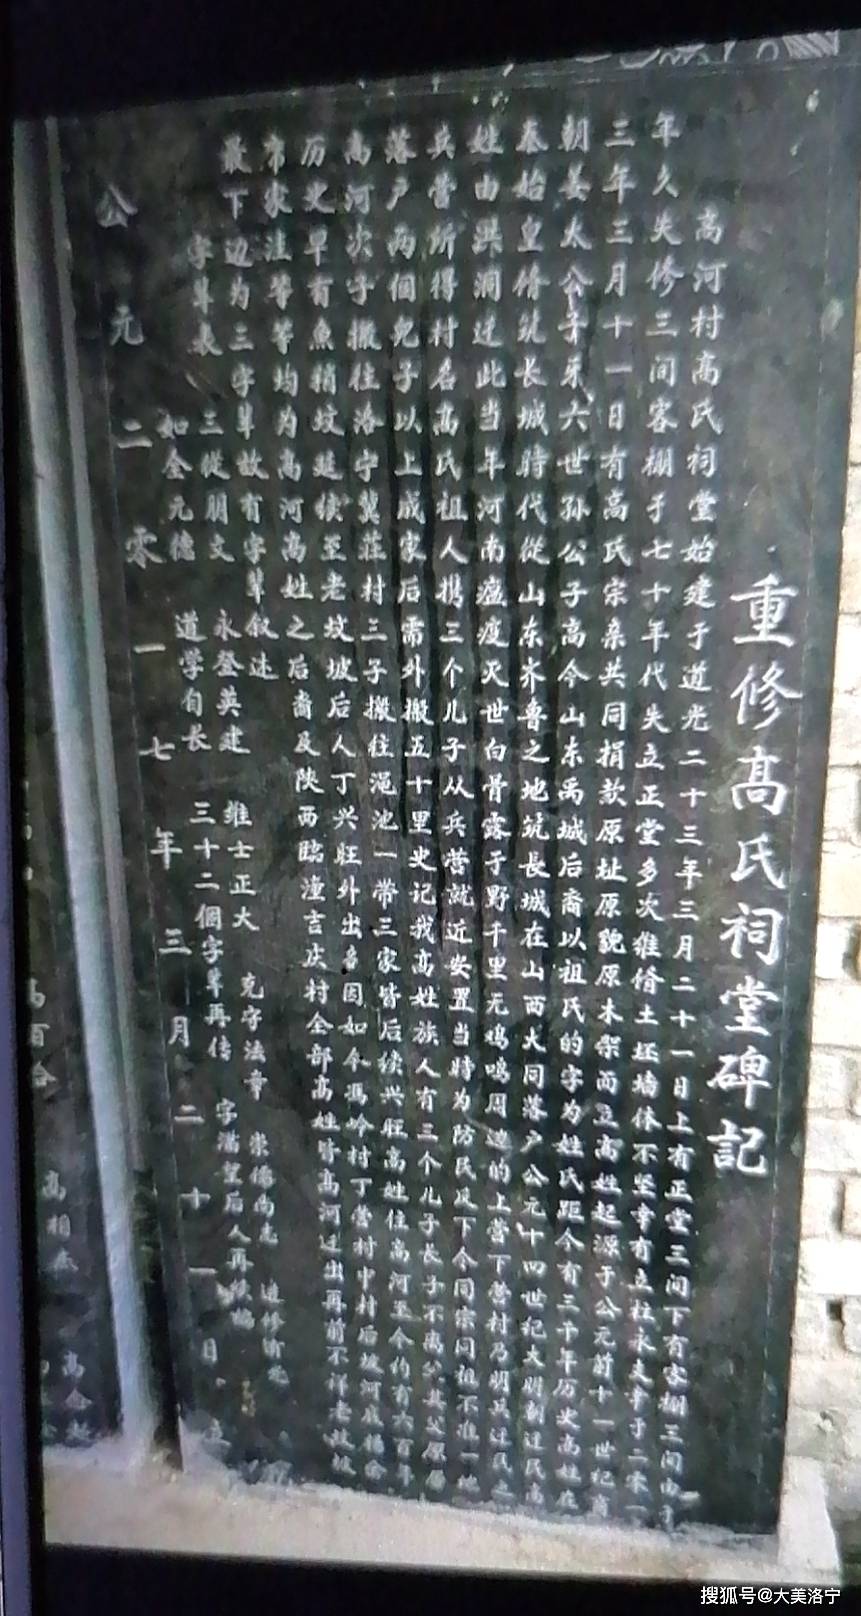 重修髙氏祠堂碑記
高河村髙氏祠堂始建于道光二十三年三月二十一日上有正堂三间下有客棚三间由于
年久失修三间客棚于七十年代失立正堂多次维脩土坯墙体不坚幸有立柱永支幸于二零一
三年三月十一日有高氏宗亲共同捐款原址原貌原木架而立高姓起源于公元前十一世纪商
朝姜太公子牙六世孙公子高今山东禹城后裔以祖氏的字为姓氏距今有三千年历史高姓在
秦始皇脩筑长城時代從山东齐鲁之地筑長城在山西大同落户公元十四世纪大明朝迁民高
姓由洪洞迁此当年河南瘟疫灭世白骨露于野千里无鸡鸣周边的上营下营村乃明兵迁民之
兵营所得村名髙氏祖人携三个儿子从兵营就近安置当時为防民反下令同宗同祖不准一地
落户两個兒子以上成家后需外搬五十里史记我髙姓族人有三个儿子长子不离父其父原居
高河次子搬往洛宁冀莊村三子搬往渑池一带三家皆后续兴旺高姓住高河至今约有六百年
历史早有魚稍坟延续至老坟坡后人丁兴旺外出多因如今馮岭村丁营村中村后坡河底杨仓
帘家洼等等均为高河高姓之后裔及陕西臨潼吉庆村全部高姓皆高河迁出再前不祥老坟坡
最下边为三字辈故有字辈叙述
字辈表 三從朋文 永登英建 维士正大 克守法章 崇德尚志 道修
如金元德 道学自长 三十二個字辈再传 字满望后人再续编
公元二零一七年三月二十一日 立
高百合 高相
高金
搜狐号@大美洛宁